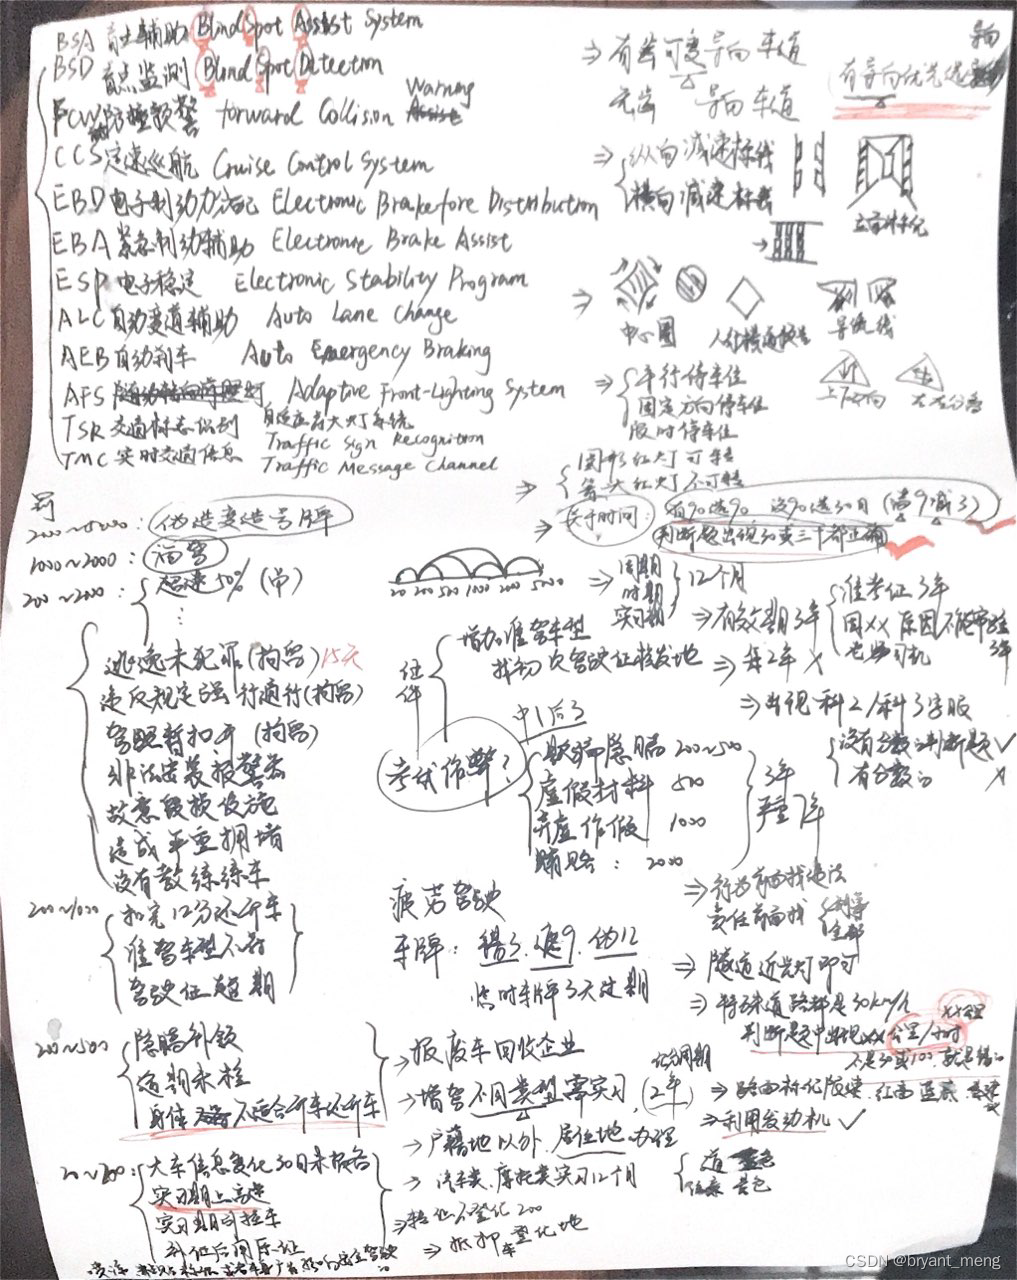 BSA 辅助 Blind Spot Assist System
BSD 盲点监测 Blind Spot Detection
FCW 防撞预警 Forward Collision Warning
CCS 定速巡航 Cruise Control System
EBD 电子制动力分配 Electronic Brakefore Distribution
EBA 紧急制动辅助 Electronic Brake Assist
ESP 电子稳定 Electronic Stability Program
ALC 自动变道辅助 Auto Lane Change
AEB 自动刹车 Auto Emergency Braking
AFS Adaptive Front-Lighting System
自适应大灯系统
TSR 交通标志识别 Traffic Sign Recognition
TMC 实时交通信息 Traffic Message Channel
⇒ 有齿可变导向车道
无齿 导向车道
有导向优先选导向
⇒ 纵向减速标线
横向减速标线
立面标记
中心圈
人行横道预告
导流线
⇒ 平行停车位
固定方向停车位
限时停车位
上下方向
左右分离
⇒ 圆形红灯可右转
箭头红灯不可转
⇒ 关于时间: 有90选90 没90选30日 (满9减3)
判断题出现30或三十都正确
罚
200~5000: 伪造变造号牌
1000~2000: 酒驾
200~2000: 超速50% (吊)
逃逸未犯罪(拘留) 15天
违反规定强行通行(拘留)
驾照暂扣开(拘留)
非法安装报警器
故意毁损设施
造成严重拥堵
没有教练练车
20 200 500 1000 2000 5000
⇒ 周期
时期
实习期
12个月
⇒ 有效期3年
准考证3年
因XX原因不能审验 3年
⇒ 每2年 X
证件
增加准驾车型
找初次驾驶证核发地
⇒ 出现科2/科3字眼
没有分数的判断题 ✓
有分数的 X
中1后3
考试作弊?
欺骗隐瞒 200~500
虚假材料 500
弄虚作假 1000
贿赂: 2000
3年
1年
200~1000
扣完12分还开车
准驾车型不符
驾驶证超期
疲劳驾驶
车牌: 错3. 9. 伪12
临时车牌3天过期
⇒ 行为前面找违法
责任前面找
全部
⇒ 隧道近光灯即可
⇒ 特殊道路都是30km/h
判断题中出现XX公里/小时
XX公里
200~500
隐瞒补领
逾期未检
身体不适合开车还开车
→ 报废车回收企业
→ 增驾不同类型需实习
记分周期
(2年)
→ 户籍地以外. 居住地办理
→ 汽车类. 摩托类实习12个月
⇒ 利用发动机 ✓
20~200:
大车信息变化30日未报告
实习期上高速
实习期牵引挂车
补证后用原证
⇒ 转 登记 200
⇒ 抵押车登记地
CSDN @bryant_meng